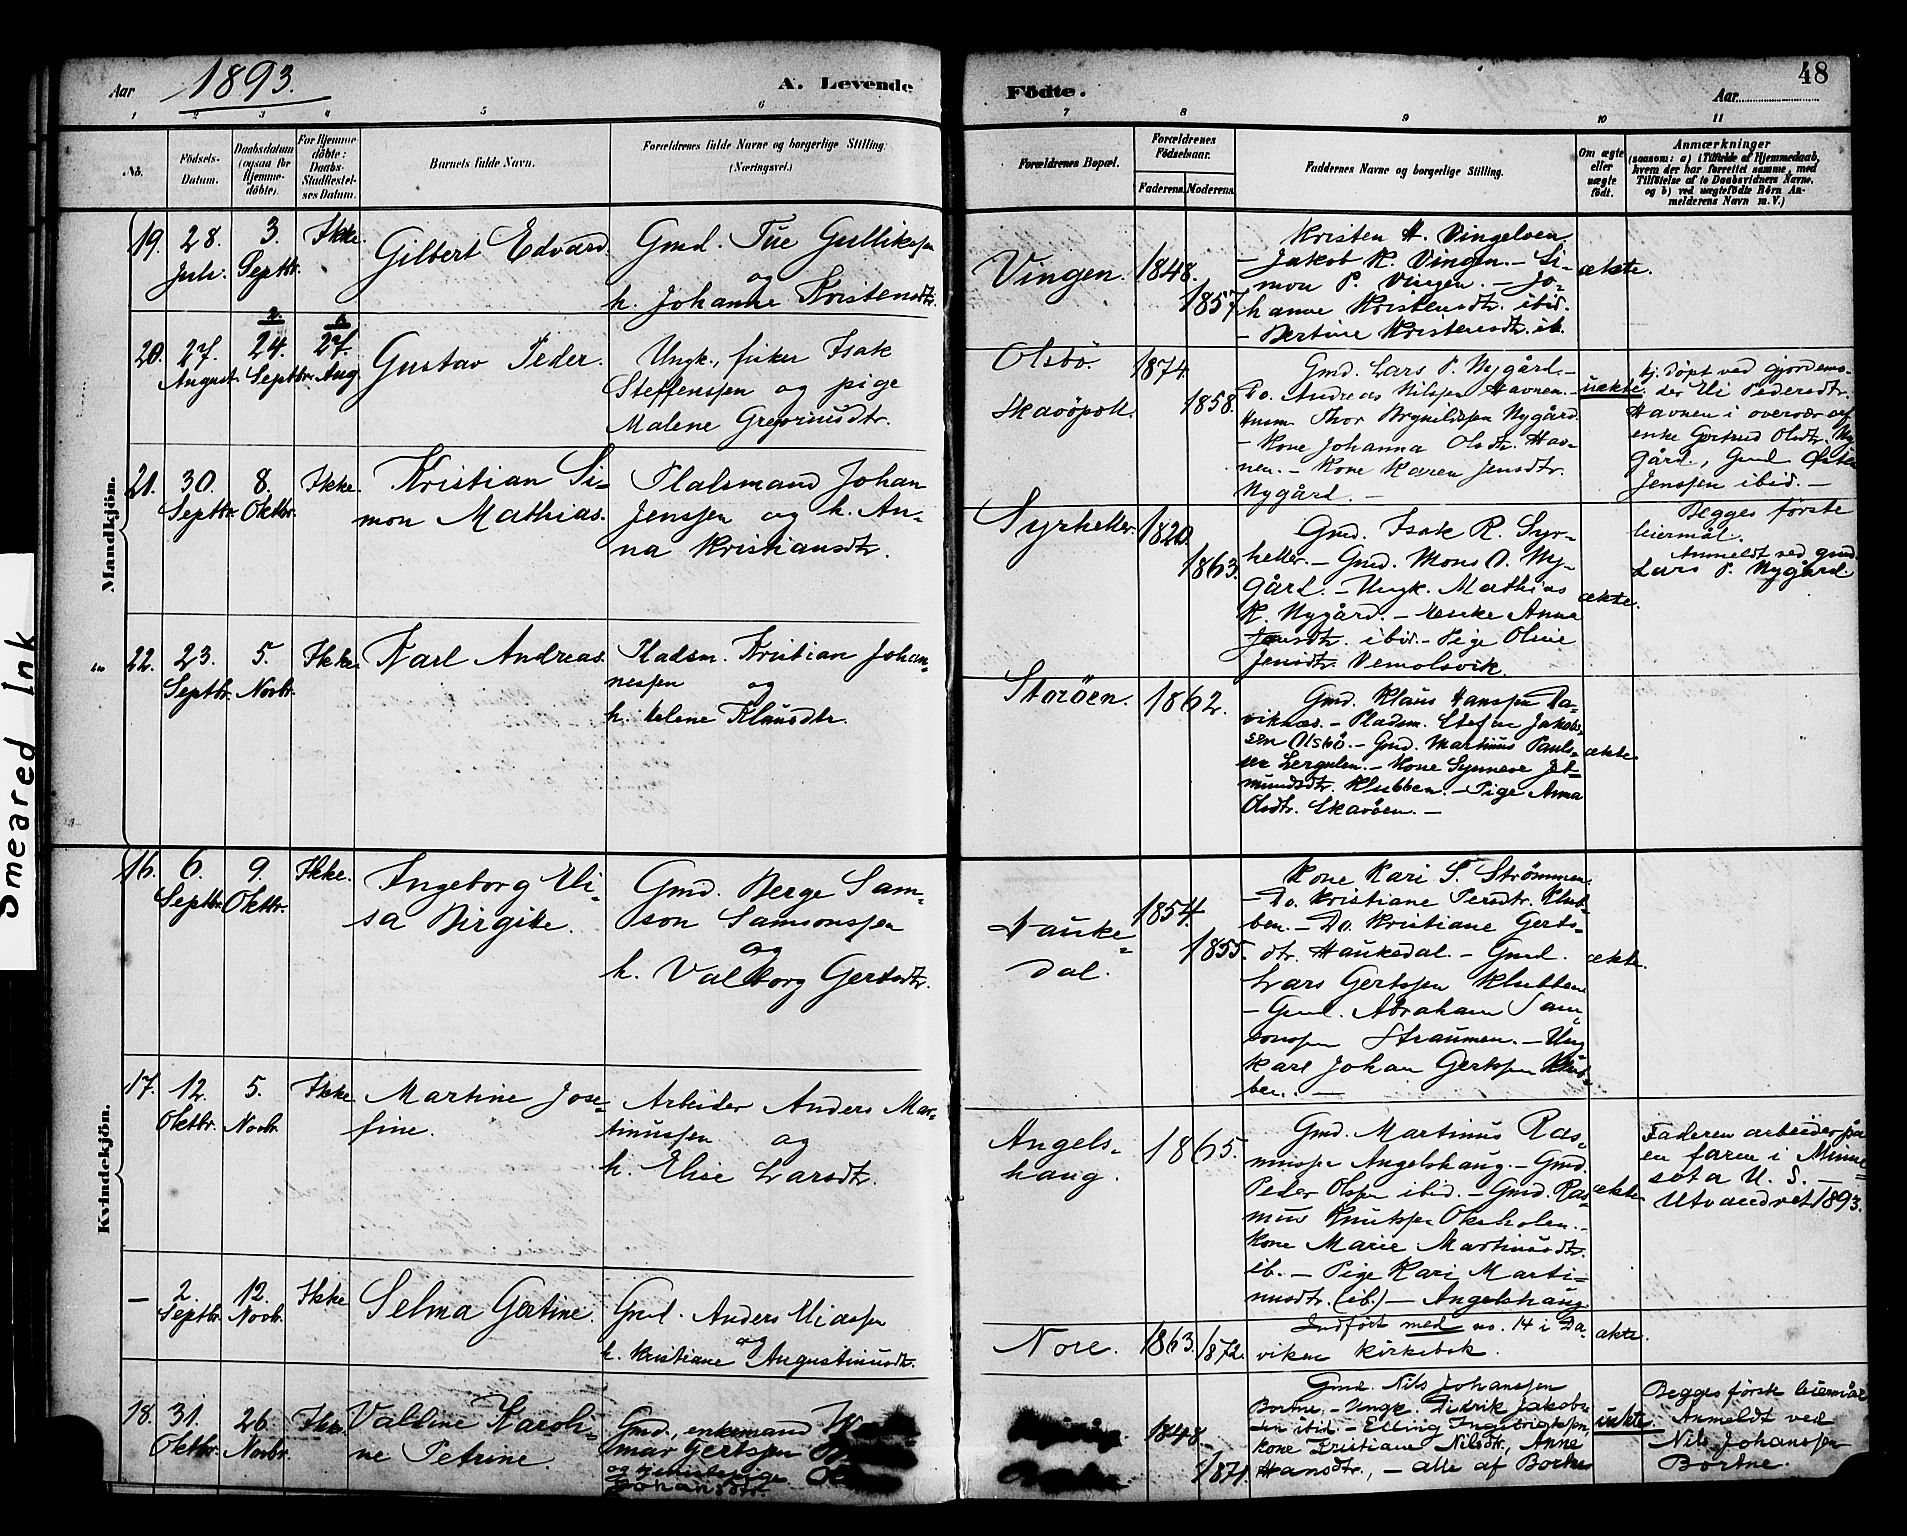 Smeared Ink
Aar 1893.
A. Levende
Födte.
48
Aar
1 2 3 4 5 6 7 8 9 10 11
No.
Födsels-
Datum.
Daabsdatum
(ogsaa for
Hjemme-
döbte).
For Hjemme-
döbte:
Daabs-
Stadfæstel-
ses Datum.
Barnets fulde Navn.
Forældrenes fulde Navne og borgerlige Stilling
(Næringsvei.)
Forældrenes Bopæl.
Forældrenes
Födselsaar.
Faderens. Moderens.
Faddernes Navne og borgerlige Stilling.
Om ægte
eller
uægte
födt.
Anmærkninger
(saasom: a) i Tilfælde af Hjemmedaab,
hvem der har forrettet samme, med
Tilföielse af to Daabsvidners Navne,
og b) ved uægtefödte Börn An-
melderens Navn m. V.)
Mandkjön.
19. 28. Juli. 3. Septbr. Ikke.
Gilbert Edvard
Gmd. Tue Gulliksen
og
h. Johanne Kristensdtr.
Vingen. 1848. 1857.
Kristen H. Vingelven
– Jakob K. Vingen. – Si-
mon P. Vingen. – Jo-
hanne Kristensdtr. ibid.
– Bertine Kristensdtr. ib.
ækte.
20. 27. August. 24. Septbr. 27. Aug.
Gustav Peder.
Ungk., fisker Isak
Steffenssen og pige
Malene Greoriusdtr.
Olsbö.
Skavöpoll.
1874. 1858.
Gmd. Lars P. Nygård. –
Do. Andreas Nilssen Havnen. –
Husm. Thor Brynildssen Nygård.
– Kone Johanna Olsdtr. Hav-
nen. – Kone Karen Jensdtr.
Nygård. –
uækte.
hj. döpt ved gjordemo-
der Eli Pedersdtr.
Havnen i overvær af
enke Gertrud Olsdtr. Ny-
gård, Gmd.
Jenssen ibid. –
Begges förste
leiermål.
Anmeldt ved gmd.
Lars P. Nygård.
21. 30. Septbr. 8. Oktbr. Ikke.
Kristian Si-
mon Mathias.
Pladsmand Johan
Jenssen og h. An-
na Kristiansdtr.
Syrheller. 1820. 1863.
Gmd. Isak R. Syr-
heller. – Gmd. Mons O. Ny-
gård. – Ungk. Mathias
K. Nygård. – Enke Anne
Jensdtr. ibid. – Pige Oline
Jensdtr. Vemolsvik.
ækte.
22. 23. Septbr. 5. Novbr. Ikke.
Karl Andreas.
Pladsm. Kristian Johan-
nessen og
h. Helene Klausdtr.
Storöen. 1862.
Gmd. Klaus Hanssen Da-
viknæs. – Pladsm. Stefen Jakobs-
sen Olsbö. – Gmd. Martinus Pauls-
sen Lergulen. – Kone Synneve Jet-
mundsdtr. Klubben. – Pige Anna
Olsdtr. Skavöen. –
ækte.
Kvindekjön.
16. 6. Septbr. 9. Oktbr. Ikke.
Ingeborg Eli-
sa Birgite.
Gmd. Berge Sam-
son Samsonssen
og
h. Valborg Gertsdtr.
Hauke-
dal.
1854. 1855.
Kone Kari S. Strömmen.
– Do. Kristiane Persdtr. Klub-
ben. – Do. Kristiane Gerts-
dtr. Haukedal. – Gmd.
Lars Gertssen Klubben
– Gmd. Abraham Sam-
sonssen Straumen. – Ung
karl Johan Gertssen Klub-
ben. –
ækte.
17. 12. Oktbr. 5. Novbr. Ikke
Martine Jose-
fine.
Arbeider Anders Mar-
tinussen og
h. Elise Larsdtr.
Angels-
haug.
1865.
Gmd. Martinus Ras-
mussen Angelshaug. – Gmd.
Peder Olssen ibid. – Gmd. Ras-
mus Knutssen Oksholen. –
Kone Marie Martinusdtr.
ib. – Pige Kari Marti-
nusdtr. (ib.) – Angelshaug.
ækte
Faderen arbeider på
en farm i Minne-
sota U. S. –
Utvandret 1893.
– 2. Septbr. 12. Novbr. Ikke
Selma Gertine.
Gmd. Anders Eliassen
og
h. Kristiane Augustinusdtr.
Nore. 1863. 1872.
Indfört med no. 14 i Da-
viken kirkebok.
ækte.
18. 31. Oktbr. 26. Novbr. Ikke.
Valdine Karoli-
ne Petrine.
Gmd., enkemand
mar Gertssen
og tjenestepige
Johansdtr.
1848. 1871.
Gmd. Nils Johanssen
Bortne. – Ungk. Didrik Jakobs-
sen ibid. – Elling Ingebrigtssen,
kone Kristiane Nilsdtr., Anne
Hansdtr., – alle af Bortne
uækte.
Begges förste leiermål
Anmeldt ved
Nils Johanssen
Bortne.